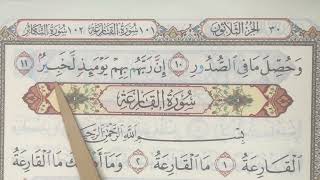 ٣٠ الجزء الثلاثون ١٠١ سورة القارعة ١٠٢ سورة التكاثر
وَحُصِّلَ مَا فِي الصُّدُورِ ١٠ إِنَّ رَبَّهُم بِهِمْ يَوْمَئِذٍ لَّخَبِيرٌ ١١
سُورَةُ الْقَارِعَةِ
بِسْمِ اللَّهِ الرَّحْمَٰنِ الرَّحِيمِ
الْقَارِعَةُ ١ مَا الْقَارِعَةُ ٢ وَمَا مَا الْقَارِعَةُ